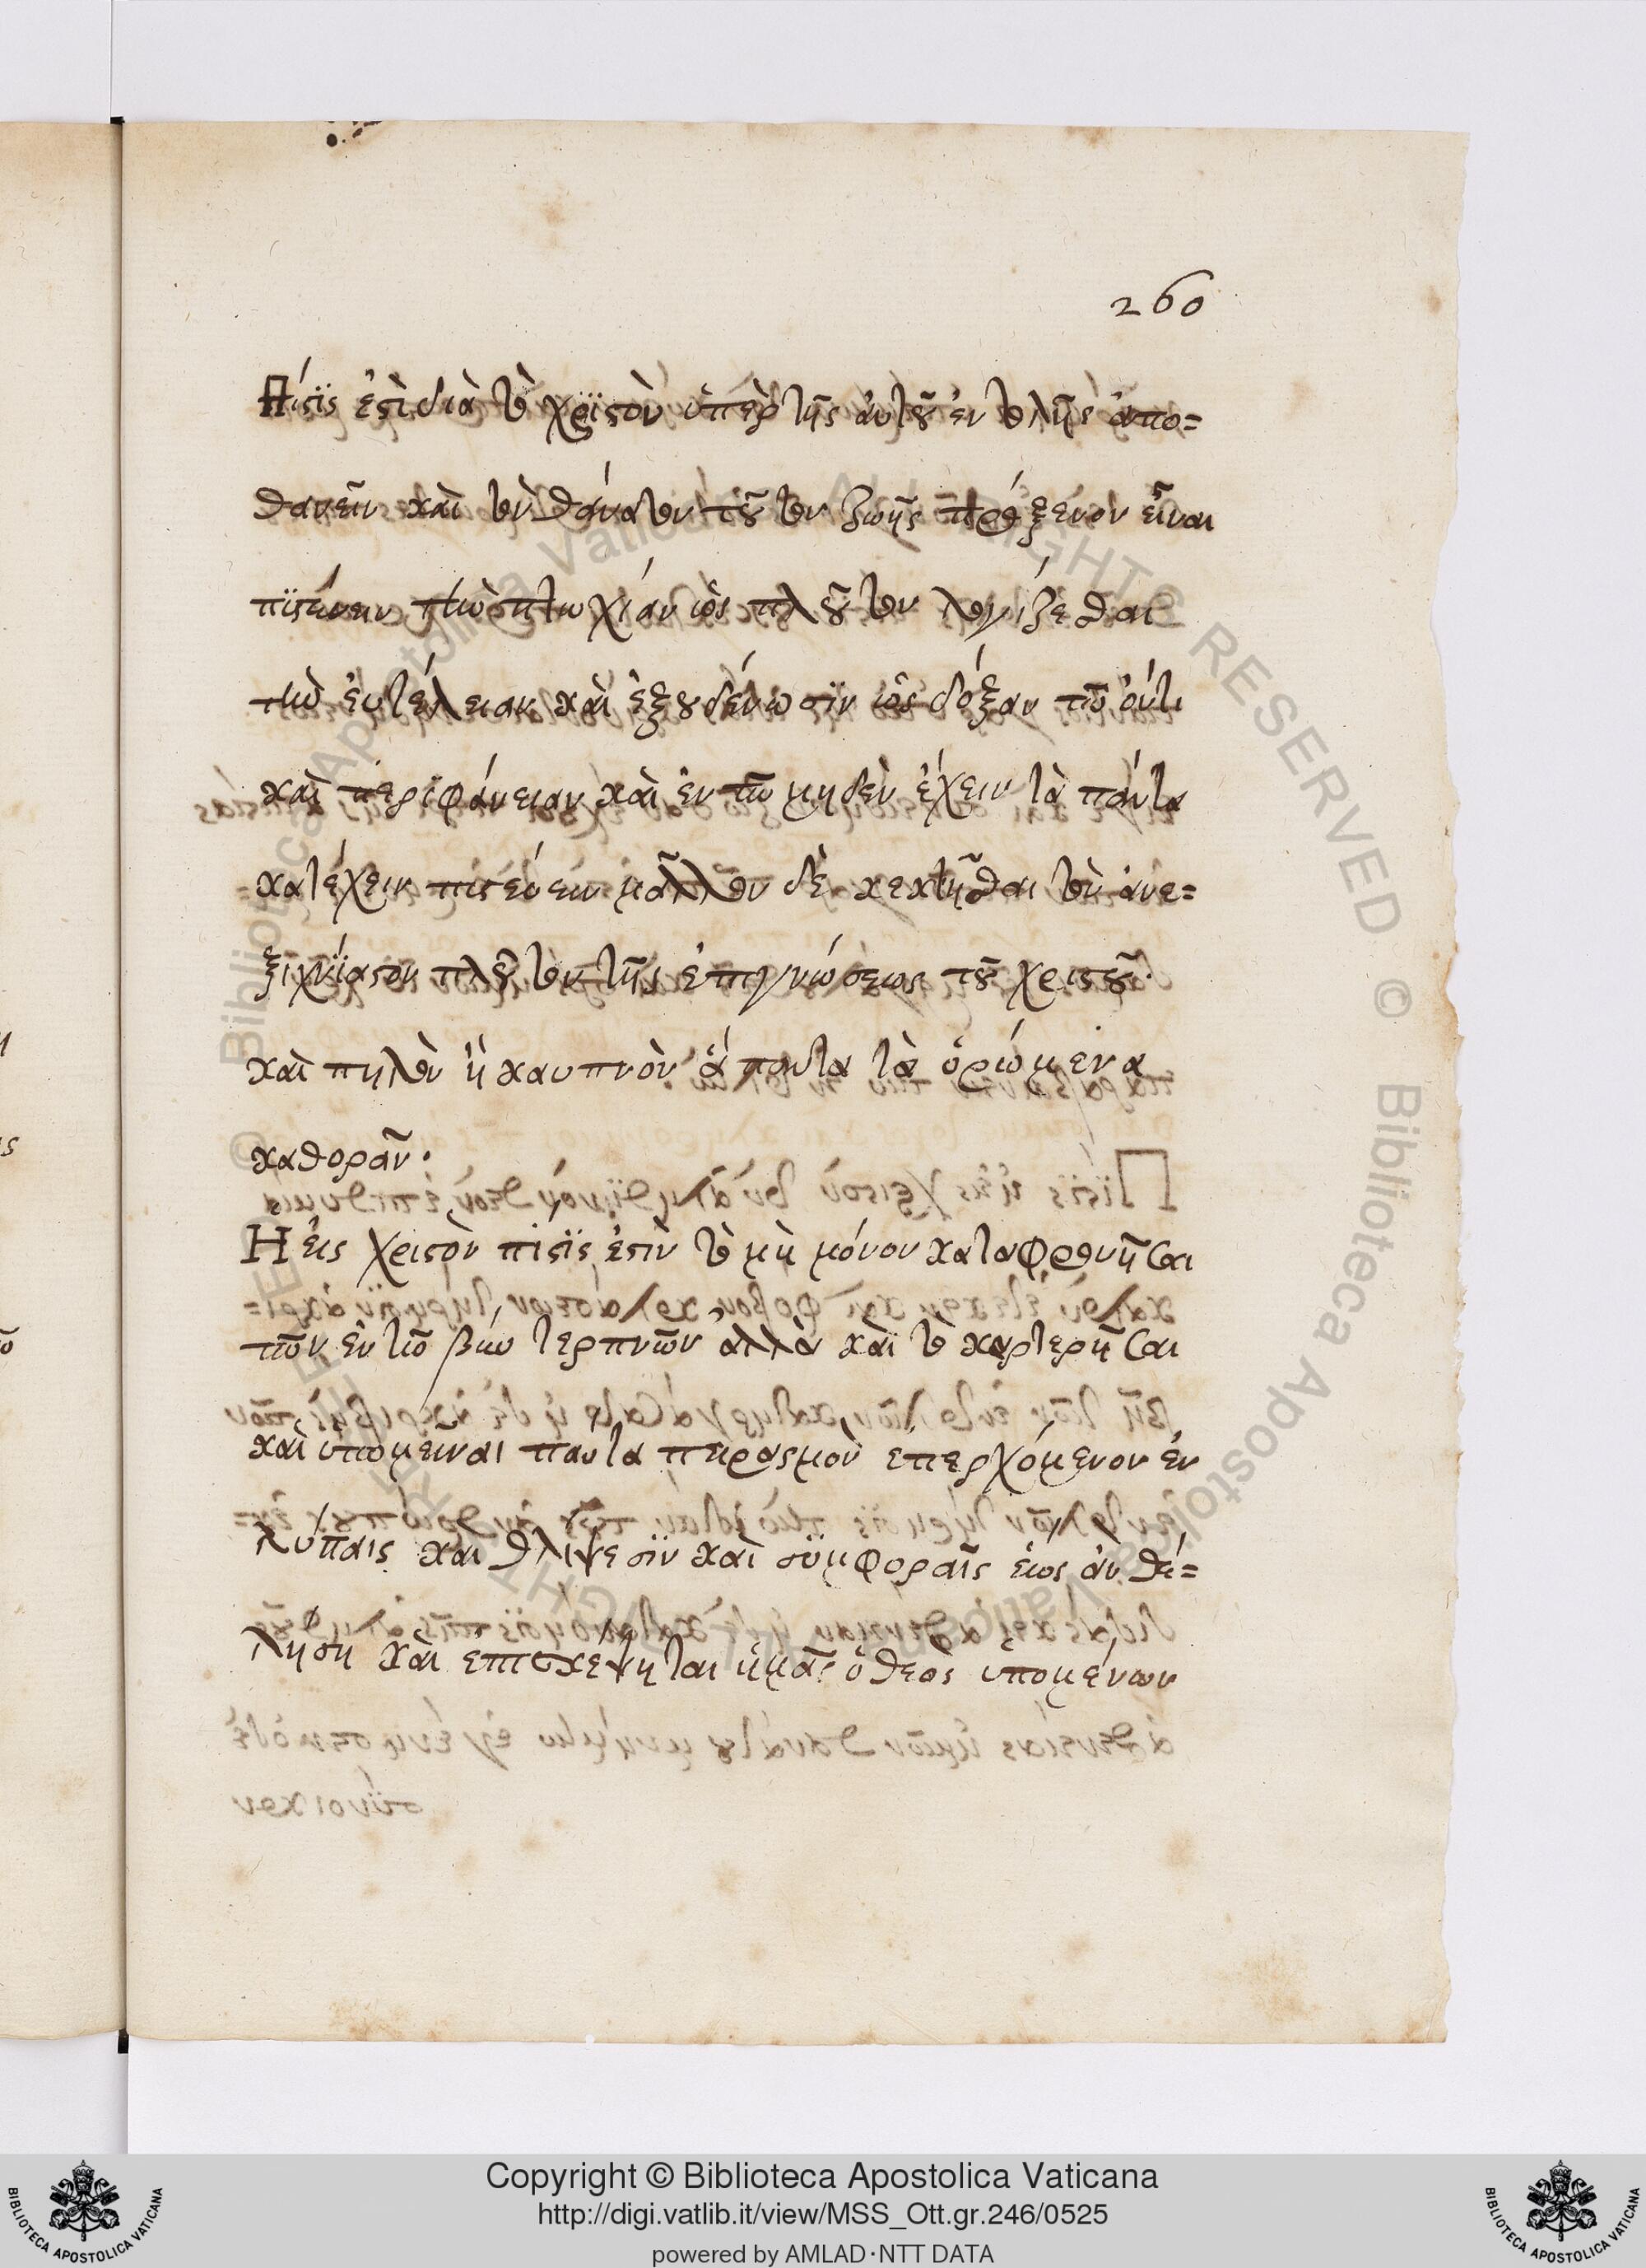 260
Πίστις ἐστὶ διὰ τὸ χριστὸν ὑπὲρ τῆς αὐτοῦ ἐντολῆς ἀπο=
θανεῖν καὶ τὸν θάνατον τοῦτον ζωῆς πρόξενον εἶναι
πιστεύειν τὴν πτωχίαν ὡς πλοῦτον λογίζεσθαι
τὴν εὐτέλειαν καὶ ἐξουδένωσιν ὡς δόξαν τῷ ὄντι
καὶ περιφάνειαν καὶ ἐν τῷ μηδὲν ἔχειν τὰ πάντα
κατέχειν πιστεύειν μᾶλλον δὲ κεκτῆσθαι τὸν ἀνε=
ξιχνίαστον πλοῦτον τῆς ἐπιγνώσεως τοῦ χριστοῦ.
καὶ πηλὸν ἢ καπνὸν ἅπαντα τὰ ὁρώμενα
καθορᾶν.
Η εἰς χριστὸν πίστις ἐστὶν τὸ μὴ μόνον καταφρονῆσαι
τῶν ἐν τῷ βίῳ τερπνῶν ἀλλὰ καὶ τὸ καρτερῆσαι
καὶ ὑπομεῖναι πάντα πειρασμὸν ἐπερχόμενον ἐν
λύπαις καὶ θλίψεσιν καὶ συμφοραῖς ἕως ἂν θε=
λήσῃ καὶ ἐπισκέψηται ἡμᾶς ὁ θεὸς ὑπομένων
© Biblioteca Apostolica Vaticana ALL RIGHTS RESERVED © Biblioteca Apostolica Vaticana ALL RIGHTS RESERVED
Copyright © Biblioteca Apostolica Vaticana
http://digi.vatlib.it/view/MSS_Ott.gr.246/0525
powered by AMLAD·NTT DATA
BIBLIOTECA APOSTOLICA VATICANA
BIBLIOTECA APOSTOLICA VATICANA